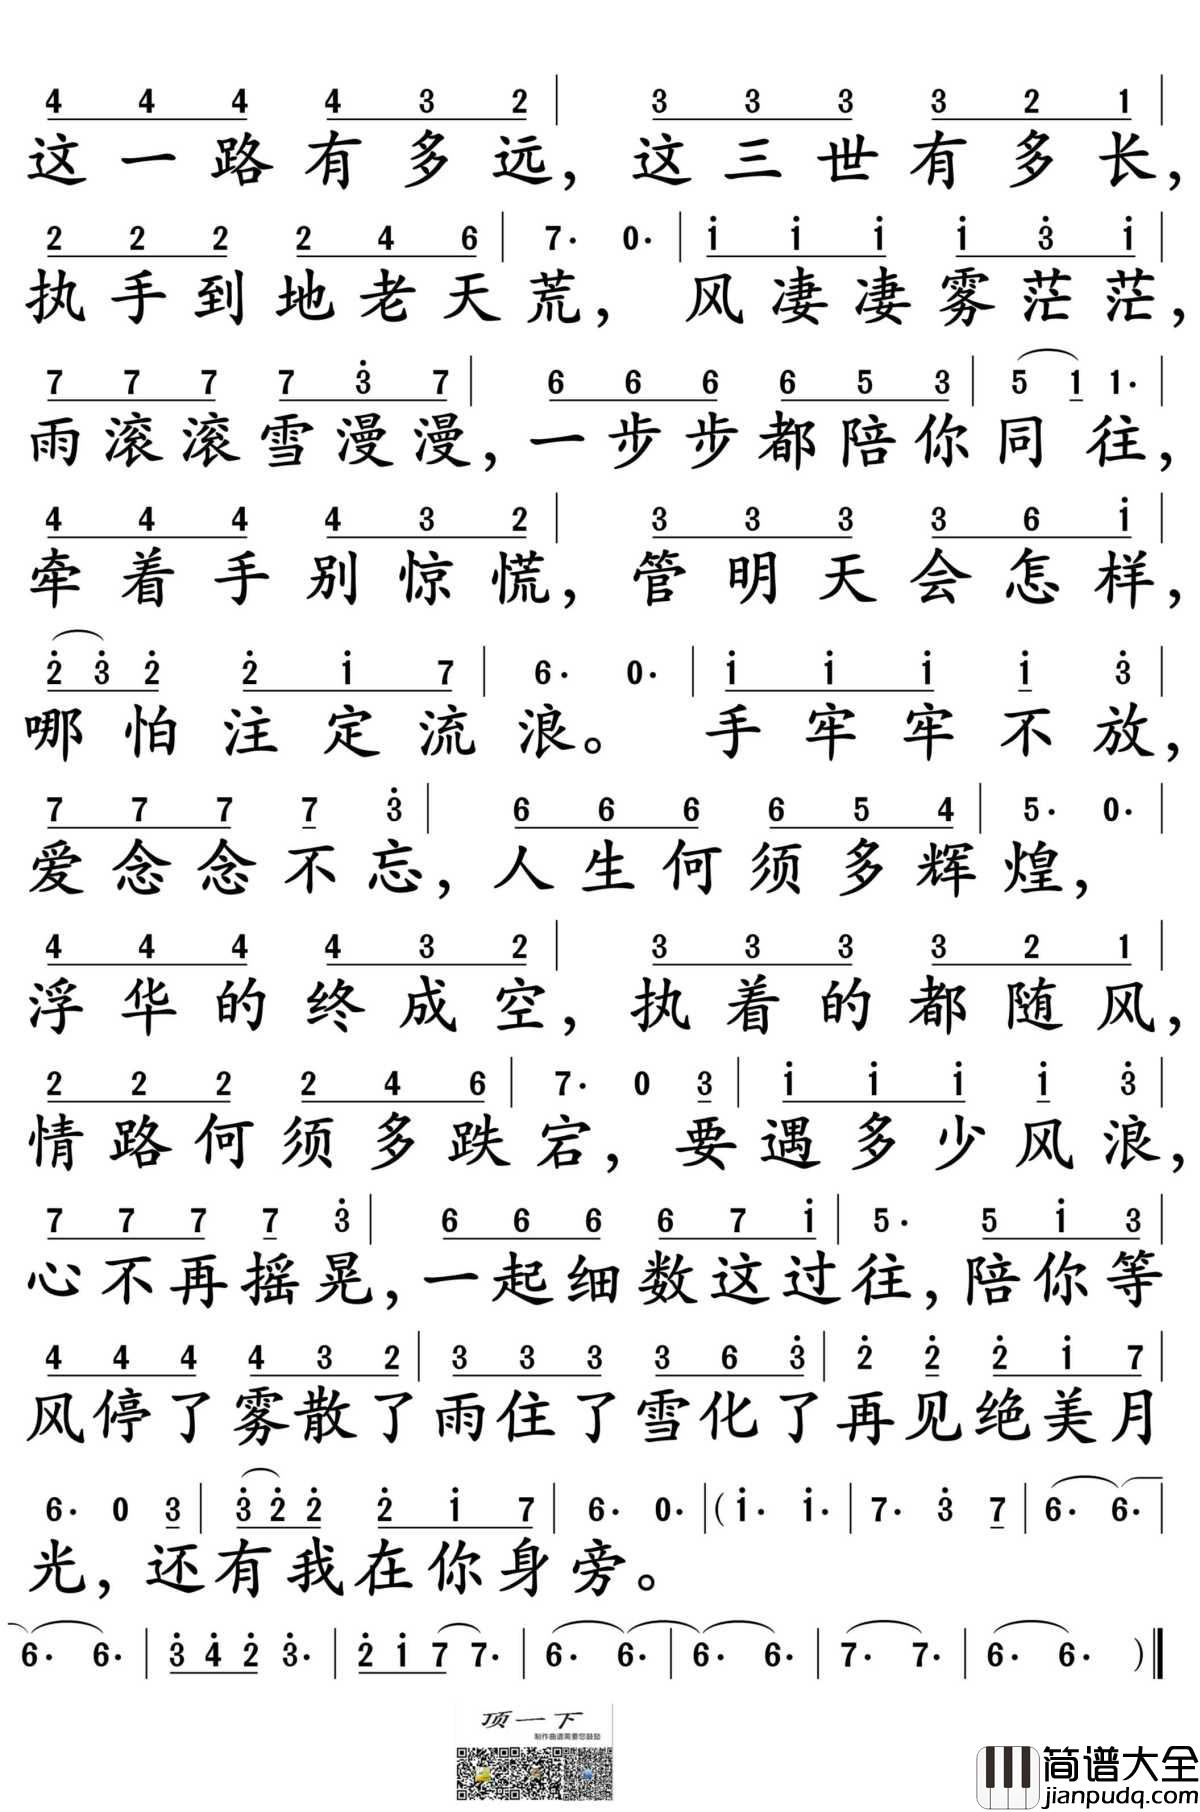 4 4 4 4 3 2 | 3 3 3 3 2 1 |
这一路有多远，这三世有多长，
2 2 2 2 4 6 | 7· 0· | i i i i 3̇ i |
执手到地老天荒，风凄凄雾茫茫，
7 7 7 7 3̇ 7 | 6 6 6 6 5 3 | 5 1 1· |
雨滚滚雪漫漫，一步步都陪你同往，
4 4 4 4 3 2 | 3 3 3 3 6 i |
牵着手别惊慌，管明天会怎样，
2̇ 3̇ 2̇ 2̇ i 7 | 6· 0· | i i i i 3̇ |
哪怕注定流浪。手牢牢不放，
7 7 7 7 3̇ | 6 6 6 6 5 4 | 5· 0· |
爱念念不忘，人生何须多辉煌，
4 4 4 4 3 2 | 3 3 3 3 2 1 |
浮华的终成空，执着的都随风，
2 2 2 2 4 6 | 7· 0 3 | i i i i 3̇ |
情路何须多跌宕，要遇多少风浪，
7 7 7 7 3̇ | 6 6 6 6 7 i | 5· 5 i 3 |
心不再摇晃，一起细数这过往，陪你等
4 4 4 4 3 2 | 3 3 3 3 6 3̇ | 2̇ 2̇ 2̇ i 7 |
风停了雾散了雨住了雪化了再见绝美月
6· 0 3 | 3̇ 2̇ 2̇ 2̇ i 7 | 6· 0· | (i· i· | 7· 3̇ 7 | 6· 6· |
光，还有我在你身旁。
6· 6· | 3̇ 4̇ 2̇ 3̇· | 2̇ i 7 7· | 6· 6· | 6· 6· | 7· 7· | 6· 6· ) ‖
顶一下
制作曲谱需要您鼓励
简谱大全
jianpudq.com